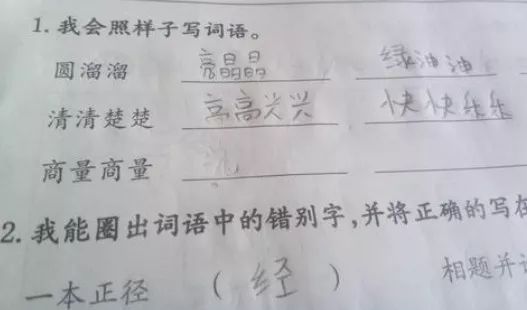 1.我会照样子写词语。
圆溜溜 亮晶晶 绿油油
清清楚楚 高高兴兴 快快乐乐
商量商量
2.我能圈出词语中的错别字,并将正确的写在
一本正径 (经) 相题并